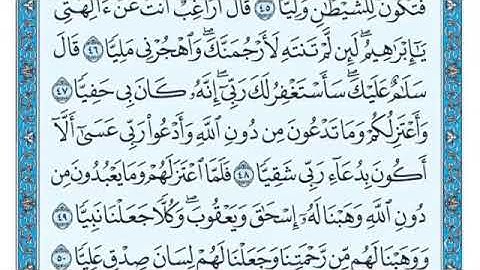 فَتَكُونَ لِلشَّيْطَٰنِ وَلِيًّا ٤٥ قَالَ أَرَاغِبٌ أَنتَ عَنْ ءَالِهَتِى
يَٰٓإِبْرَٰهِيمُ ۖ لَئِن لَّمْ تَنتَهِ لَأَرْجُمَنَّكَ ۖ وَٱهْجُرْنِى مَلِيًّا ٤٦ قَالَ
سَلَٰمٌ عَلَيْكَ ۖ سَأَسْتَغْفِرُ لَكَ رَبِّىٓ ۖ إِنَّهُۥ كَانَ بِى حَفِيًّا ٤٧
وَأَعْتَزِلُكُمْ وَمَا تَدْعُونَ مِن دُونِ ٱللَّهِ وَأَدْعُوا۟ رَبِّى عَسَىٰٓ أَلَّآ
أَكُونَ بِدُعَآءِ رَبِّى شَقِيًّا ٤٨ فَلَمَّا ٱعْتَزَلَهُمْ وَمَا يَعْبُدُونَ مِن
دُونِ ٱللَّهِ وَهَبْنَا لَهُۥٓ إِسْحَٰقَ وَيَعْقُوبَ ۖ وَكُلًّا جَعَلْنَا نَبِيًّا ٤٩
وَوَهَبْنَا لَهُم مِّن رَّحْمَتِنَا وَجَعَلْنَا لَهُمْ لِسَانَ صِدْقٍ عَلِيًّا ٥٠